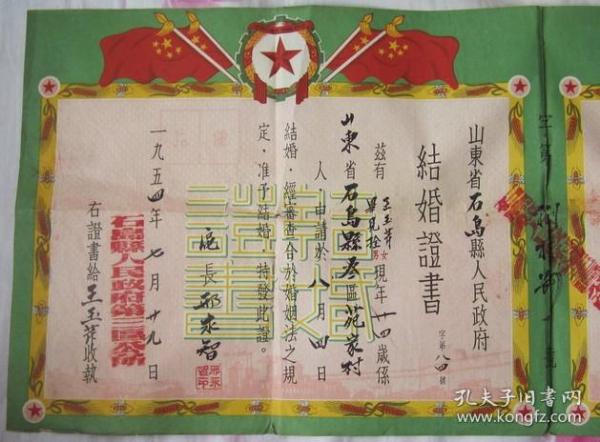 山東省石島縣人民政府
結婚證書
字第八四號
茲有
王玉萍女
畢見拴男
現年廿四歲係
山東省石島縣叁區苑家村
人·申請於八月四日
結婚·經審查合於婚姻法之規
定·准予結婚·特發此證。
區長
一九五四年七月廿九日
石島縣人民政府第三區公所
右證書給王玉萍收執
結婚證書
字第
孔夫子旧书网
www.kongfz.com